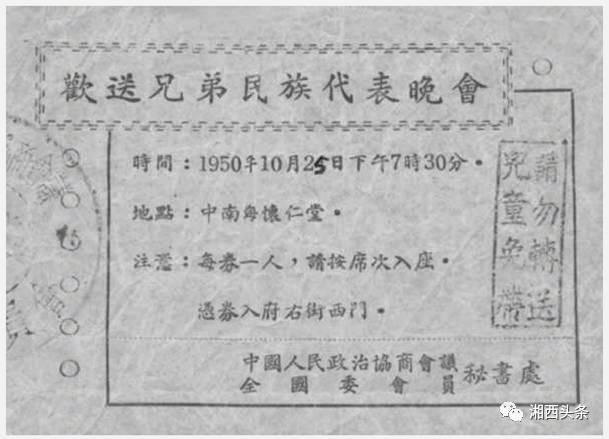 歡送兄弟民族代表晚會
時間：1950年10月25日下午7時30分。
地點：中南海懷仁堂。
注意：每券一人，請按席次入座。
憑券入府右街西門。
請勿轉送
兒童免帶
中國人民政治協商會議
全國委員會
秘書處
湘西头条